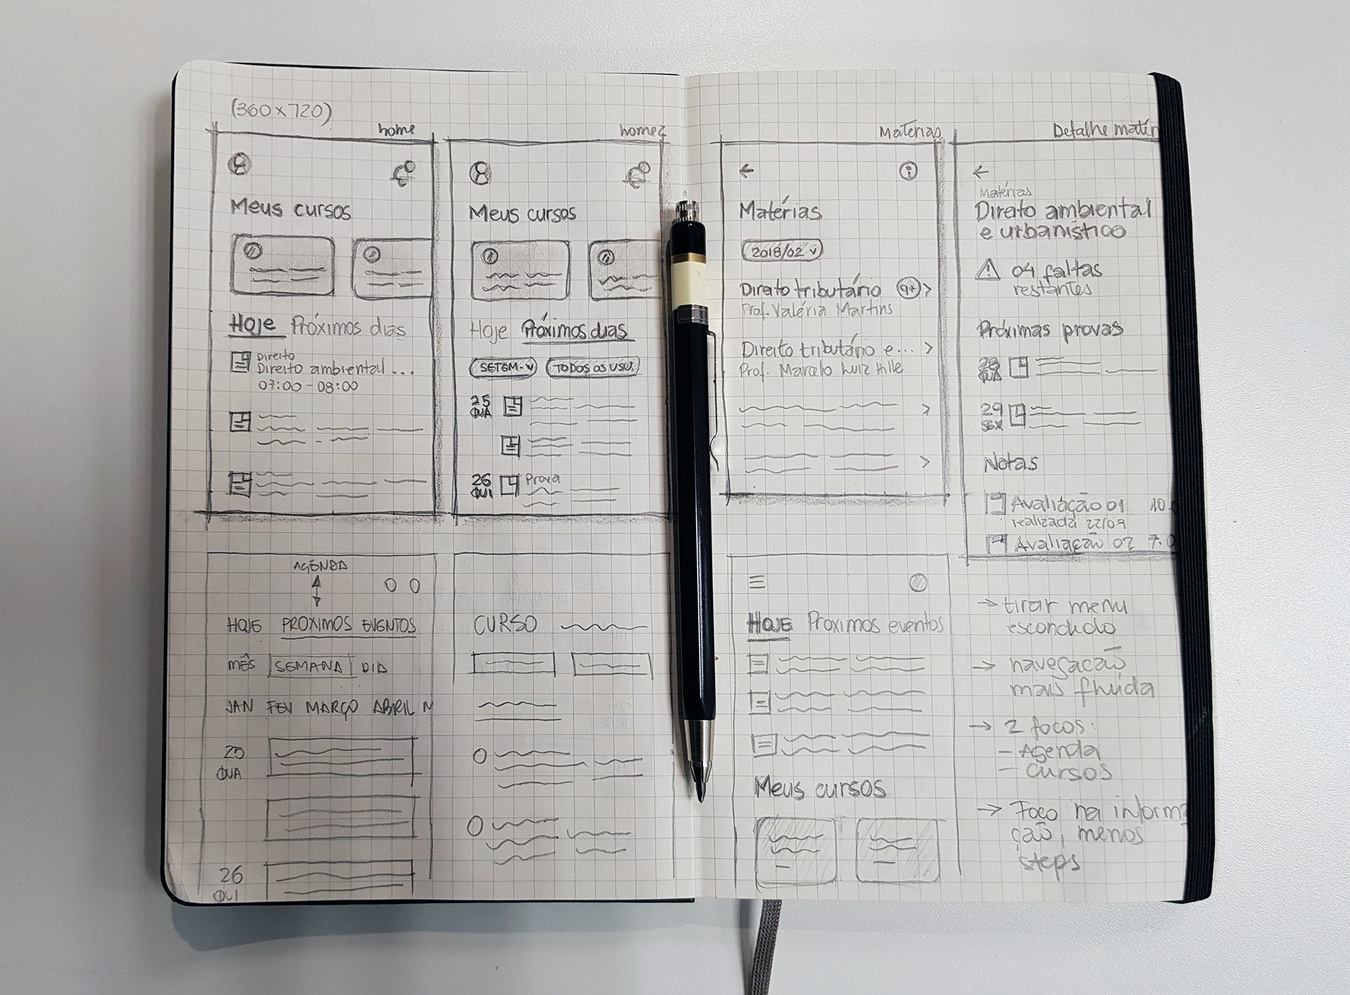 (360x720)
home
Meus cursos
Hoje Próximos dias
Direito
Direito ambiental ...
07:00 - 08:00
home2
Meus cursos
Hoje Próximos dias
SETEM.
TODOS OS
25
QUA
26
QUI
Prova
Matérias
Matérias
2018/02
Direito tributário 9+
Prof. Valéria Martins
Direito tributário e...
Prof. Marcelo Luiz Hille
Detalhe matér
Matérias
Direito ambiental
e urbanístico
04 faltas
restantes
Próximas provas
QUA
29
SEX
Notas
Avaliação 01 10.
realizada 22/09
Avaliação 02 7.0
AGENDA
HOJE PRÓXIMOS EVENTOS
MÊS SEMANA DIA
JAN FEV MARÇO ABRIL M
25
QUA
26
QUI
CURSO
HOJE Próximos eventos
Meus cursos
→ tirar menu
escondido
→ navegação
mais fluída
→ 2 focos:
- Agenda
- cursos
→ Foco na inform
ção, menos
steps